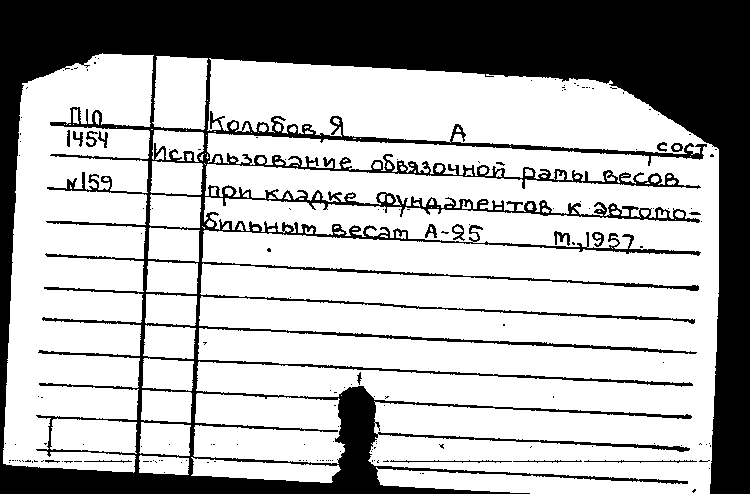 П10 Колобов, Я А сост.
1454 Использование обвязочной рамы весов
№159 при кладке фундаментов к автомо=
бильным весам А-25 М., 1957.